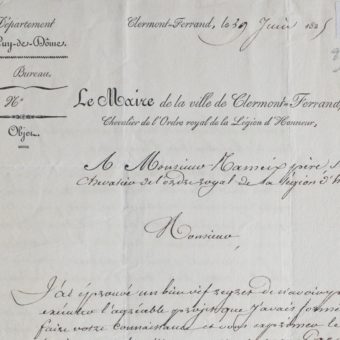 Département
Puy-de-Dôme.
Clermont-Ferrand, le 30 Juin 182
Bureau.
N°
Objet
Le Maire de la ville de Clermont-Ferrand,
Chevalier de l'Ordre royal de la Légion d'Honneur,
A Monsieur père
Chevalier de l'ordre royal de la légion d'h
Monsieur,
J'ai éprouvé un bien vif regret de n'avoir
l'agréable projet que j'avais formé
faire votre connaissance et vous exprimer le